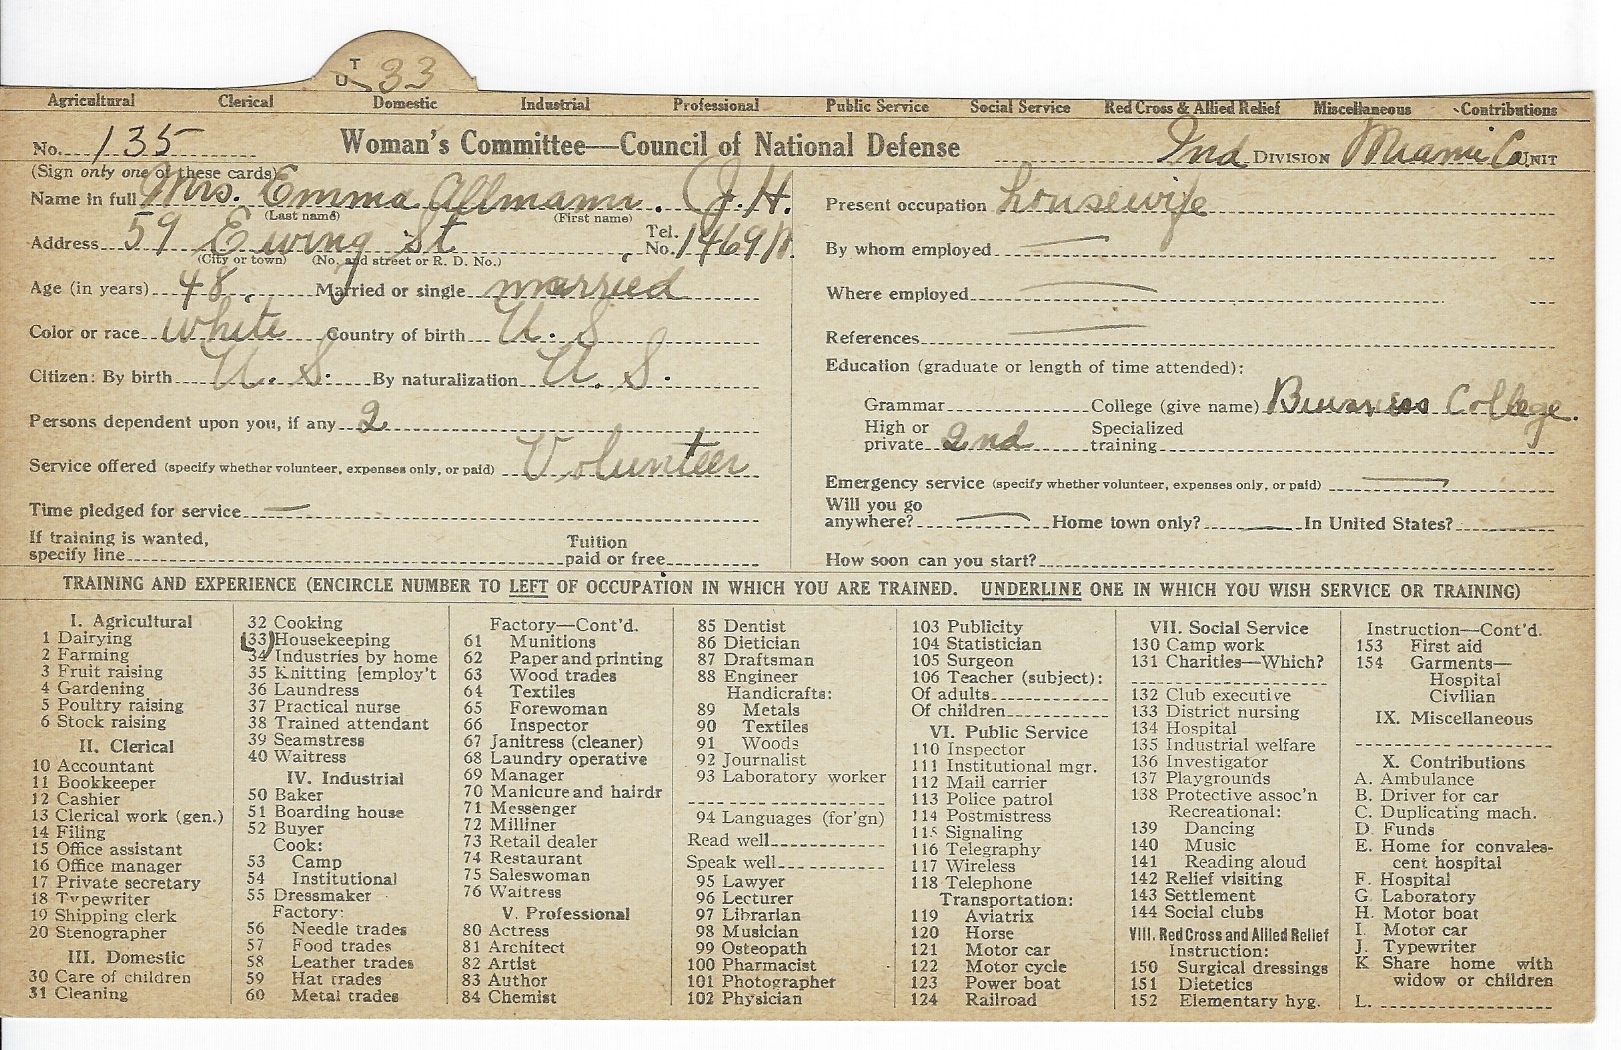 T
U 33
Agricultural Clerical Domestic Industrial Professional Public Service Social Service Red Cross & Allied Relief Miscellaneous Contributions
No. 135 Woman's Committee—Council of National Defense Ind DIVISION Miami Co. UNIT
(Sign only one of these cards)
Name in full Mrs. Emma Allmann. J. H.
(Last name) (First name)
Address 59 Ewing St. Tel. No. 1469
(City or town) (No. and street or R. D. No.)
Age (in years) 48. Married or single married
Color or race white Country of birth U. S
Citizen: By birth U. S. By naturalization U. S.
Persons dependent upon you, if any 2
Service offered (specify whether volunteer, expenses only, or paid) Volunteer
Time pledged for service —
If training is wanted,
specify line Tuition paid or free
Present occupation housewife
By whom employed —
Where employed —
References —
Education (graduate or length of time attended):
Grammar College (give name) Business College.
High or private 2nd Specialized training
Emergency service (specify whether volunteer, expenses only, or paid) —
Will you go
anywhere? — Home town only? — In United States?
How soon can you start?
TRAINING AND EXPERIENCE (ENCIRCLE NUMBER TO LEFT OF OCCUPATION IN WHICH YOU ARE TRAINED. UNDERLINE ONE IN WHICH YOU WISH SERVICE OR TRAINING)
I. Agricultural
1 Dairying
2 Farming
3 Fruit raising
4 Gardening
5 Poultry raising
6 Stock raising
II. Clerical
10 Accountant
11 Bookkeeper
12 Cashier
13 Clerical work (gen.)
14 Filing
15 Office assistant
16 Office manager
17 Private secretary
18 Typewriter
19 Shipping clerk
20 Stenographer
III. Domestic
30 Care of children
31 Cleaning
32 Cooking
(33) Housekeeping
34 Industries by home
35 Knitting [employ't
36 Laundress
37 Practical nurse
38 Trained attendant
39 Seamstress
40 Waitress
IV. Industrial
50 Baker
51 Boarding house
52 Buyer
Cook:
53 Camp
54 Institutional
55 Dressmaker
Factory:
56 Needle trades
57 Food trades
58 Leather trades
59 Hat trades
60 Metal trades
Factory—Cont'd.
61 Munitions
62 Paper and printing
63 Wood trades
64 Textiles
65 Forewoman
66 Inspector
67 Janitress (cleaner)
68 Laundry operative
69 Manager
70 Manicure and hairdr
71 Messenger
72 Milliner
73 Retail dealer
74 Restaurant
75 Saleswoman
76 Waitress
V. Professional
80 Actress
81 Architect
82 Artist
83 Author
84 Chemist
85 Dentist
86 Dietician
87 Draftsman
88 Engineer
Handicrafts:
89 Metals
90 Textiles
91 Woods
92 Journalist
93 Laboratory worker
94 Languages (for'gn)
Read well
Speak well
95 Lawyer
96 Lecturer
97 Librarian
98 Musician
99 Osteopath
100 Pharmacist
101 Photographer
102 Physician
103 Publicity
104 Statistician
105 Surgeon
106 Teacher (subject):
Of adults
Of children
VI. Public Service
110 Inspector
111 Institutional mgr.
112 Mail carrier
113 Police patrol
114 Postmistress
115 Signaling
116 Telegraphy
117 Wireless
118 Telephone
Transportation:
119 Aviatrix
120 Horse
121 Motor car
122 Motor cycle
123 Power boat
124 Railroad
VII. Social Service
130 Camp work
131 Charities—Which?
132 Club executive
133 District nursing
134 Hospital
135 Industrial welfare
136 Investigator
137 Playgrounds
138 Protective assoc'n
Recreational:
139 Dancing
140 Music
141 Reading aloud
142 Relief visiting
143 Settlement
144 Social clubs
VIII. Red Cross and Allied Relief
Instruction:
150 Surgical dressings
151 Dietetics
152 Elementary hyg.
Instruction—Cont'd.
153 First aid
154 Garments—
Hospital
Civilian
IX. Miscellaneous
X. Contributions
A. Ambulance
B. Driver for car
C. Duplicating mach.
D. Funds
E. Home for convales-
cent hospital
F. Hospital
G. Laboratory
H. Motor boat
I. Motor car
J. Typewriter
K Share home with
widow or children
L.